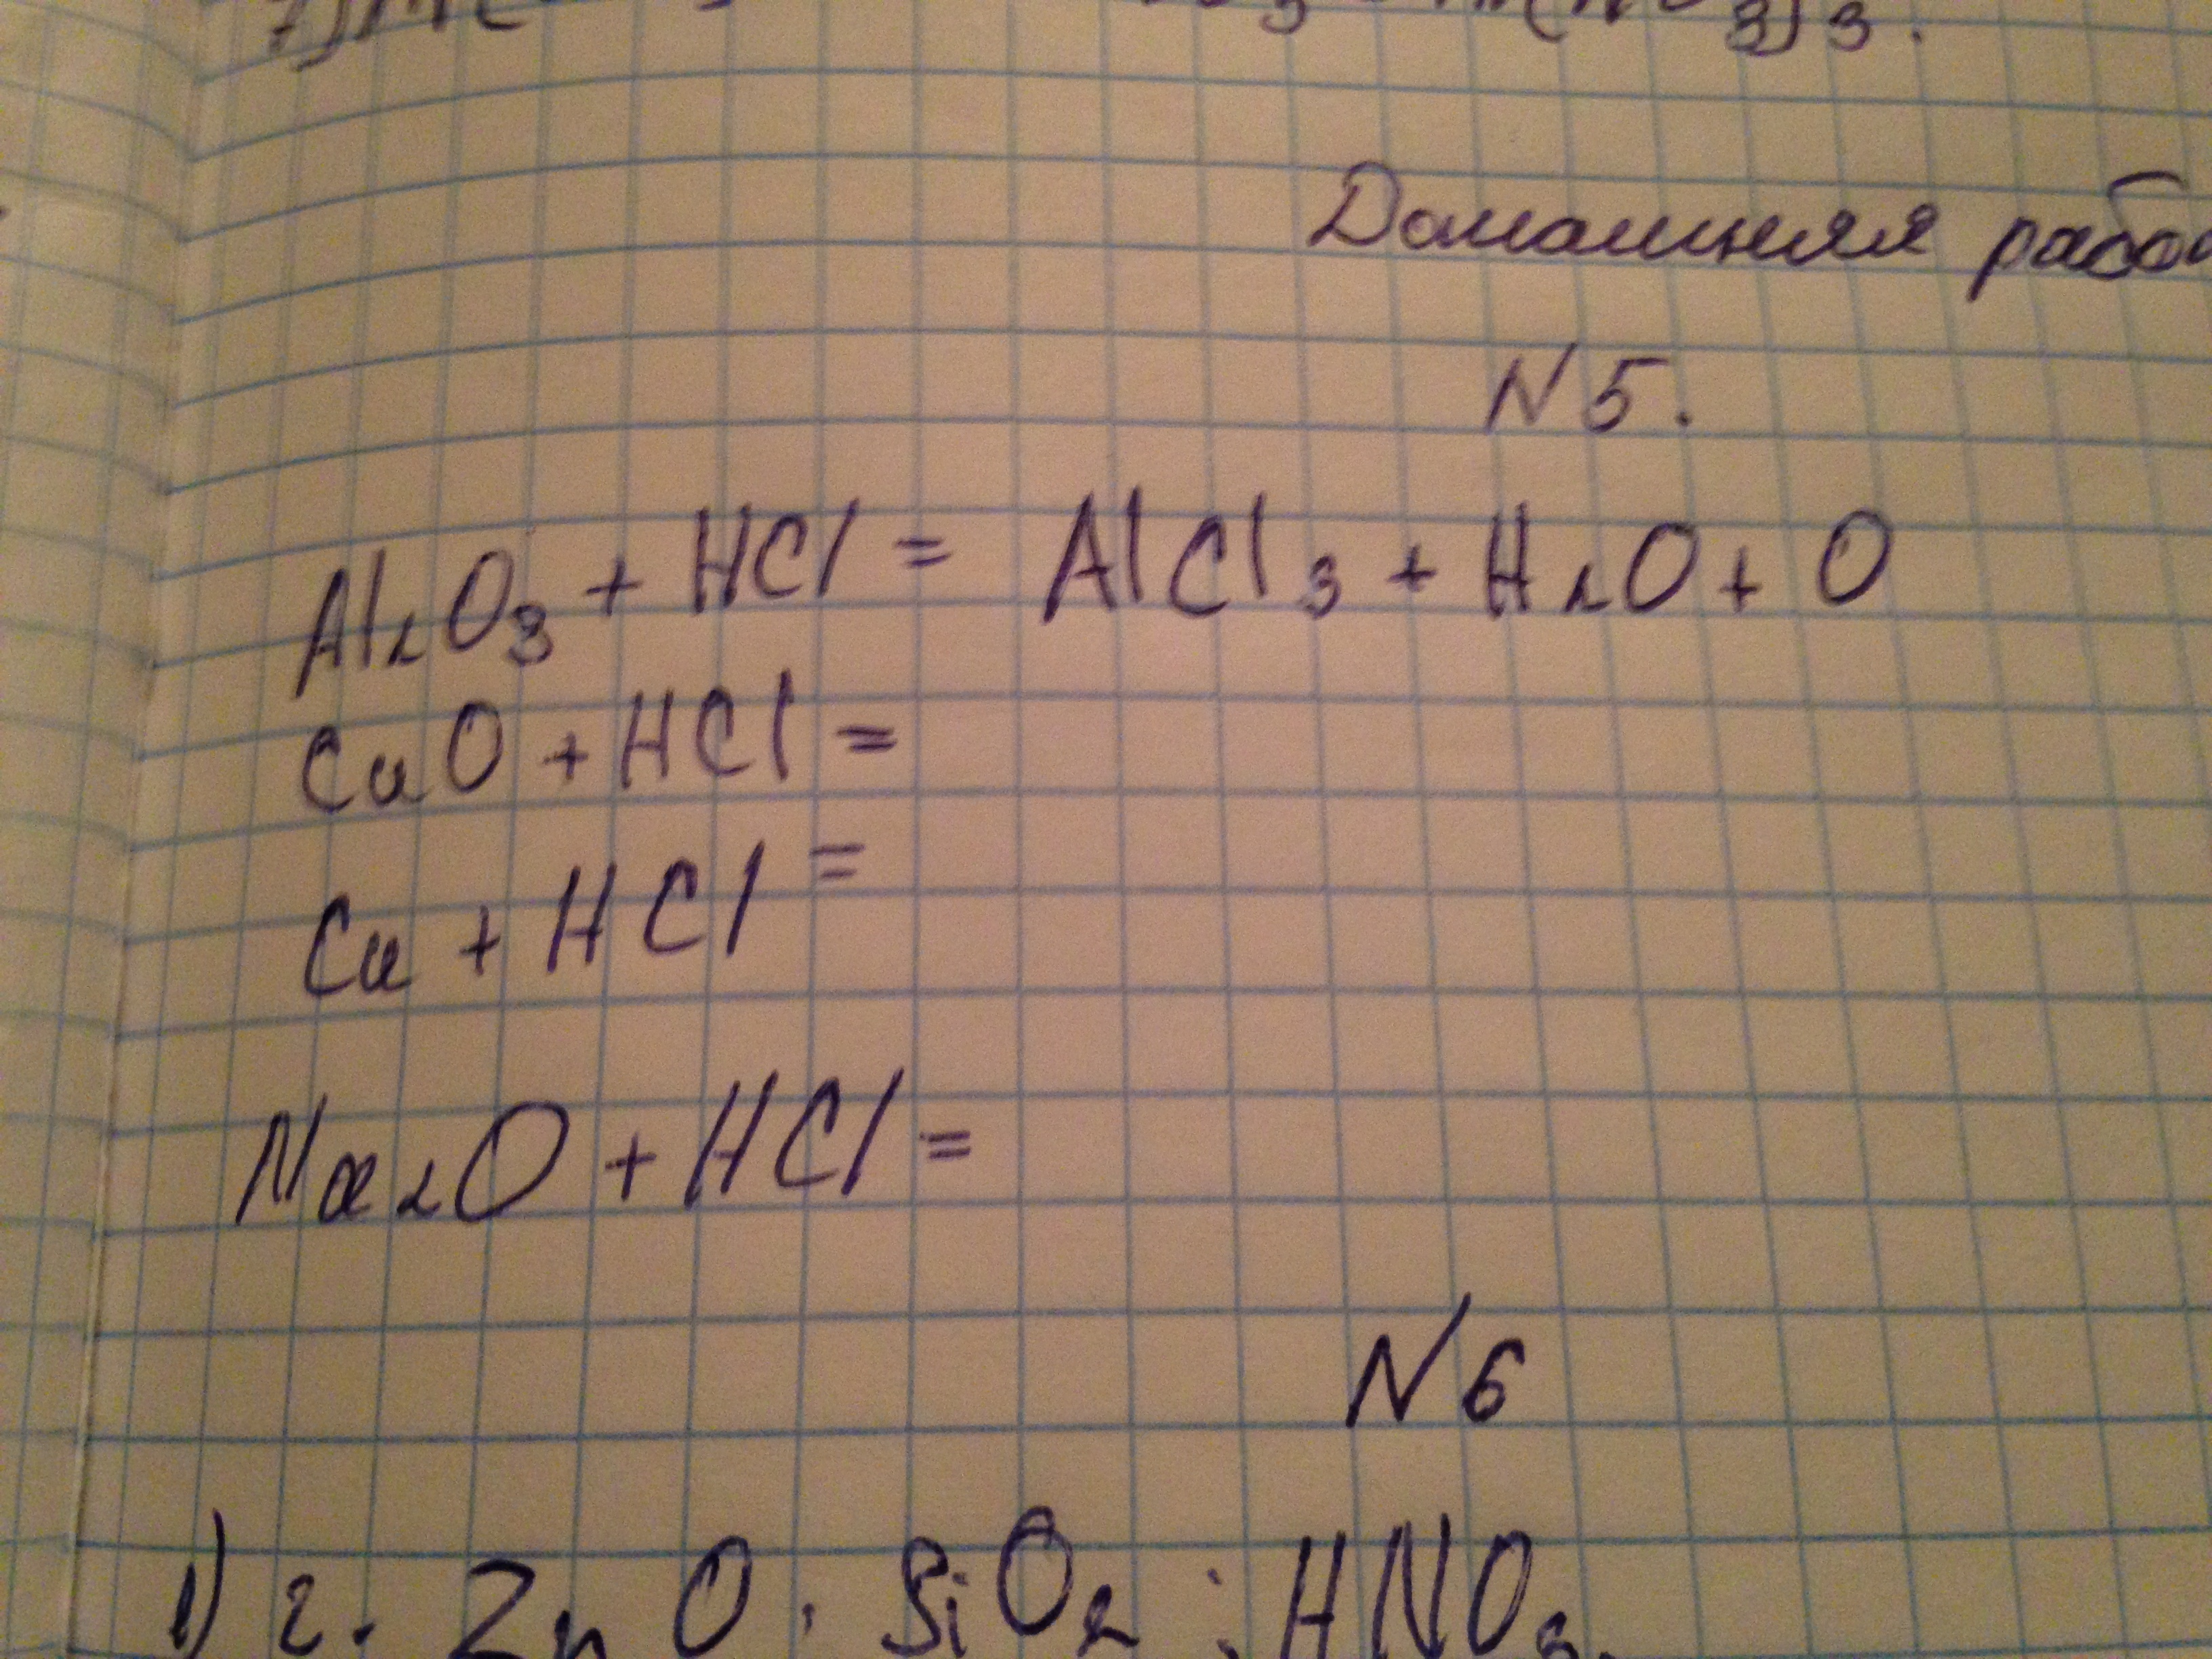 Домашняя
N5.
Al₂O₃ + HCl = AlCl₃ + H₂O + O
CuO + HCl =
Cu + HCl =
Na₂O + HCl =
N6
1) 2. ZnO; SiO₂; HNO₃